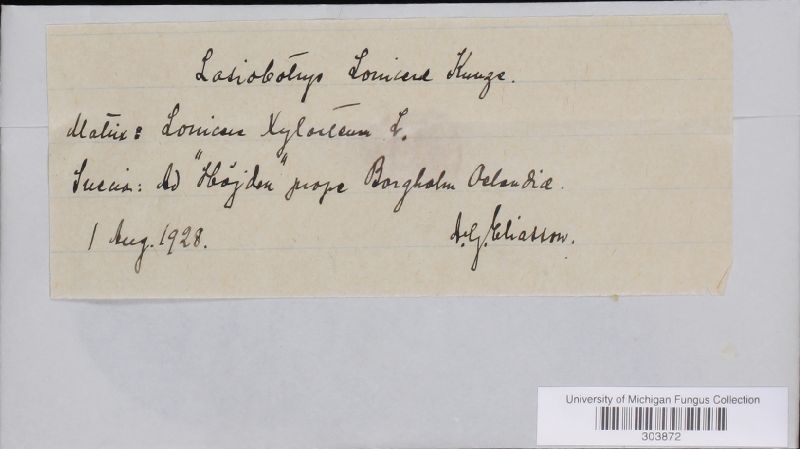 Lasiobotrys Loniceræ Kunze.
Matrix: Lonicera Xylosteum L.
Suecia: Ad "Höjden" prope Borgholm Oelandiæ.
1 Aug. 1928.
A.G. Eliasson.
University of Michigan Fungus Collection
303872